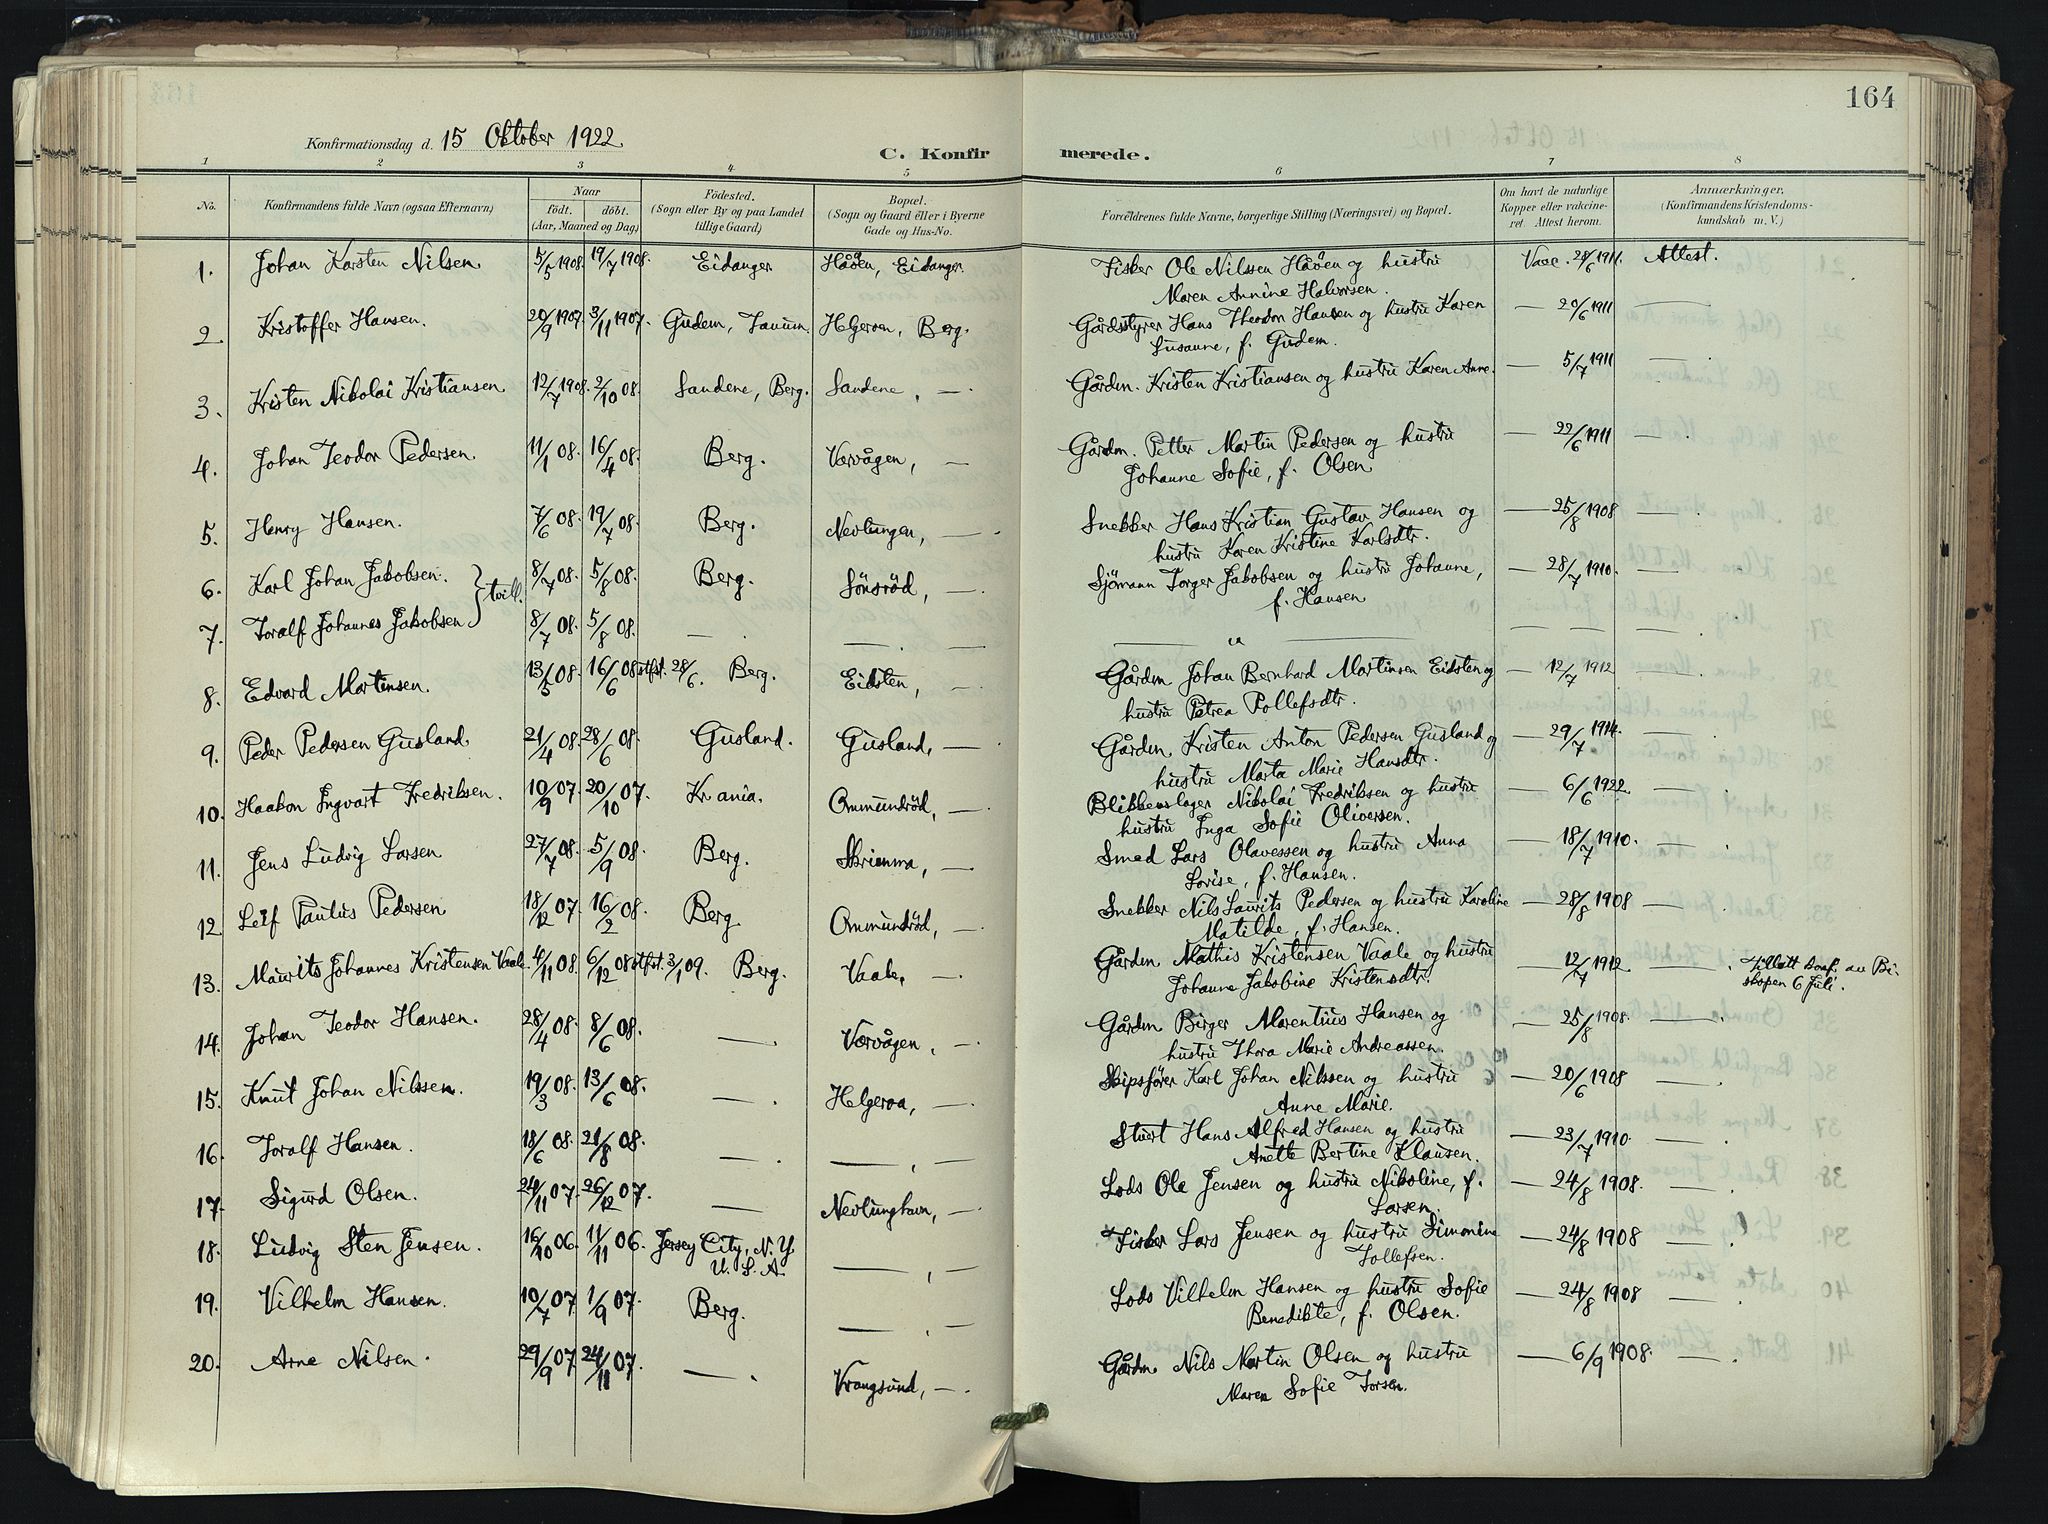 164
Konfirmationsdag d. 15 Oktober 1922.
C. Konfirmerede.
1 2 3 4 5 6 7 8
No.
Konfirmandens fulde Navn (ogsaa Efternavn)
Naar
födt. döbt.
(Aar, Maaned og Dag)
Födested.
(Sogn eller By og paa Landet
tillige Gaard)
Bopæl.
(Sogn og Gaard eller i Byerne
Gade og Hus-No.
Forældrenes fulde Navne, borgerlige Stilling (Næringsvei) og Bopæl.
Om havt de naturlige
Kopper eller vakcine-
ret. Attest herom.
Anmærkninger.
(Konfirmandens Kristendoms-
kundskab m. V.)
1. Johan Karsten Nilsen 5/5 1908. 19/7 1908. Eidanger Håöen, Eidanger. Fisker Ole Nilssen Håöen og hustru Vacc. 28/6 1911. Attest.
Maren Annine Halvorsen.
2. Kristoffer Hansen. 20/9 1907. 3/11 1907. Gudem, Tanum. Helgeroen, Berg. Gårdsstyrer Hans Theodor Hansen og hustru Karen — 20/6 1911 —
Susanne, f. Gudem.
3. Kristen Nikolai Kristiansen 12/7 1908. 2/10 08. Sandene, Berg. Sandene, — Gårdm. Kristen Kristiansen og hustru Karen Anne. — 5/7 1911 — .
4. Johan Teodor Pedersen. 11/1 08. 16/4 08. Berg. Værvågen, — Gårdm. Petter Martin Pedersen og hustru — 22/6 1911 — .
Johanne Sofie, f. Olsen
5. Henry Hansen. 7/6 08. 19/7 08. Berg. Nevlungen, — . Snekker Hans Kristian Gustav Hansen og — 25/8 1908 — .
hustru Karen Kristine Karlsdtr.
6. Karl Johan Jakobsen. } tvill. 8/7 08. 5/8 08. Berg. Sönsröd, — Sjömann Torger Jakobsen og hustru Johanne, — 28/7 1910. — .
f. Hansen
7. Toralf Johannes Jakobsen 8/7 08. 5/8 08. — . — . — — " — — — — — .
8. Edvard Martinsen. 13/5 08. 16/6 08 stfst. 28/6. Berg. Eidsten, — Gårdm Johan Bernhard Martinsen Eidsten og — 12/7 1912 — .
hustru Petrea Pollefsdtr.
9. Peder Pedersen Gusland. 21/4 08. 28/6 08. Gusland. Gusland, — Gårdm. Kristen Anton Pedersen Gusland og — 29/7 1914. — .
hustru Marta Marie Hansdtr.
10. Haakon Ingvart Fredriksen. 10/9 07. 20/10 07. Kr ania. Ommundröd, — Blikkenslager Nikolai Fredriksen og hustru — 6/6 1922. — .
hustru Inga Sofie Oliversen.
11. Jens Ludvig Larsen 27/7 08. 5/9 08. Berg. Skrienna, — Smed Lars Olavessen og hustru Anna — 18/7 1910. — .
Lovise, f. Hansen.
12. Leif Paulus Pedersen 18/12 07. 16/2 08. Berg Ommundröd, — Snekker Nils Laurits Pedersen og hustru Karoline — 28/8 1908 — .
Matilde, f. Hansen.
13. Maurits Johannes Kristensen Vaale 4/11 08. 6/12 08 stfst. 3/1 09. Berg. Vaale, — Gårdm Mathis Kristensen Vaale og hustru — 12/7 1912 — . Tillatt konf. av Bi-
Johanne Jakobine Kristensdtr. skopen 6 Juli.
14. Johan Teodor Hansen. 28/4 08. 8/6 08. — . Værvågen, — . Gårdm Birger Marentius Hansen og — 25/8 1908. — .
hustru Thora Marie Andreassen.
15. Knut Johan Nilssen. 19/3 08. 13/6 08. — . Helgeroa, — . Skipsförer Karl Johan Nilssen og hustru — 20/6 1908 — .
Anne Marie.
16. Toralf Hansen. 18/6 08. 21/8 08. — . — , — Stuert Hans Alfred Hansen og hustru — 23/7 1910. — .
Anette Bertine Klausen.
17. Sigurd Olsen. 24/11 07. 26/12 07. — Nevlunghavn, — . Lods Ole Jensen og hustru Nikoline, f. — 24/8 1908. — .
Larsen.
18. Ludvig Sten Jensen. 16/10 06. 11/11 06. Jersey City, N. Y. — , — Fisker Lars Jensen og hustru Simonine — 24/8 1908 — .
U. S. A. Tollefsen.
19. Vilhelm Hansen. 10/7 07. 1/9 07. Berg. — , — . Lods Vilhelm Hansen og hustru Sofie — 24/8 1908 — .
Benedikte, f. Olsen.
20. Arne Nilsen. 29/9 07. 24/11 07. — . Vrangsund, — . Gårdm. Nils Martin Olsen og hustru — 6/9 1908. — .
Maren Sofie Torsen.